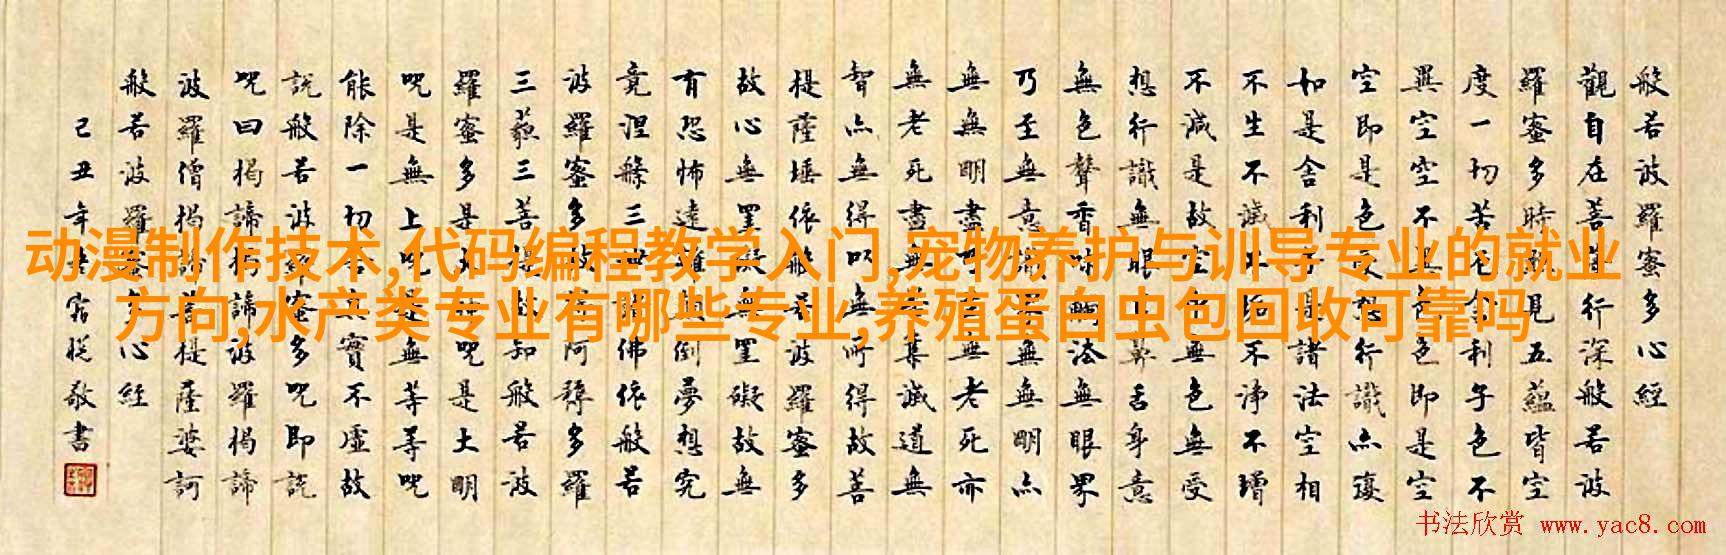 般若波羅蜜多心經
觀自在菩薩行深般若波
羅蜜多時照見五蘊皆空
度一切苦厄舍利子色不
異空空不異色色即是空
空即是色受想行識亦復
如是舍利子是諸法空相
不生不滅不垢不淨不增
不減是故空中無色無受
想行識無眼耳鼻舌身意
無色聲香味觸法無眼界
乃至無意識界無無明亦
無無明盡乃至無老死亦
無老死盡無苦集滅道無
智亦無得以無所得故菩
提薩埵依般若波羅蜜多
故心無罣礙無罣礙故無
有恐怖遠離顛倒夢想究
竟涅槃三世諸佛依般若
波羅蜜多故得阿耨多羅
三藐三菩提故知般若波
羅蜜多是大神咒是大明
咒是無上咒是無等等咒
能除一切苦真實不虛故
說般若波羅蜜多咒即說
咒曰揭諦揭諦波羅揭諦
波羅僧揭諦菩提薩婆訶
般若波羅蜜多心經
己丑年敬書
动漫制作技术,代码编程教学入门,宠物养护与训导专业的就业
方向,水产类专业有哪些专业,养殖蛋白虫包回收可靠吗
书法欣赏 www.yac8.com